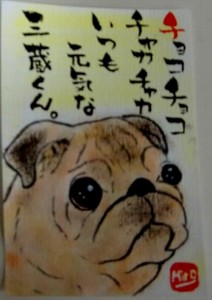 チョコチョコ
チャカチャカ
いつも
元気な
三蔵くん。